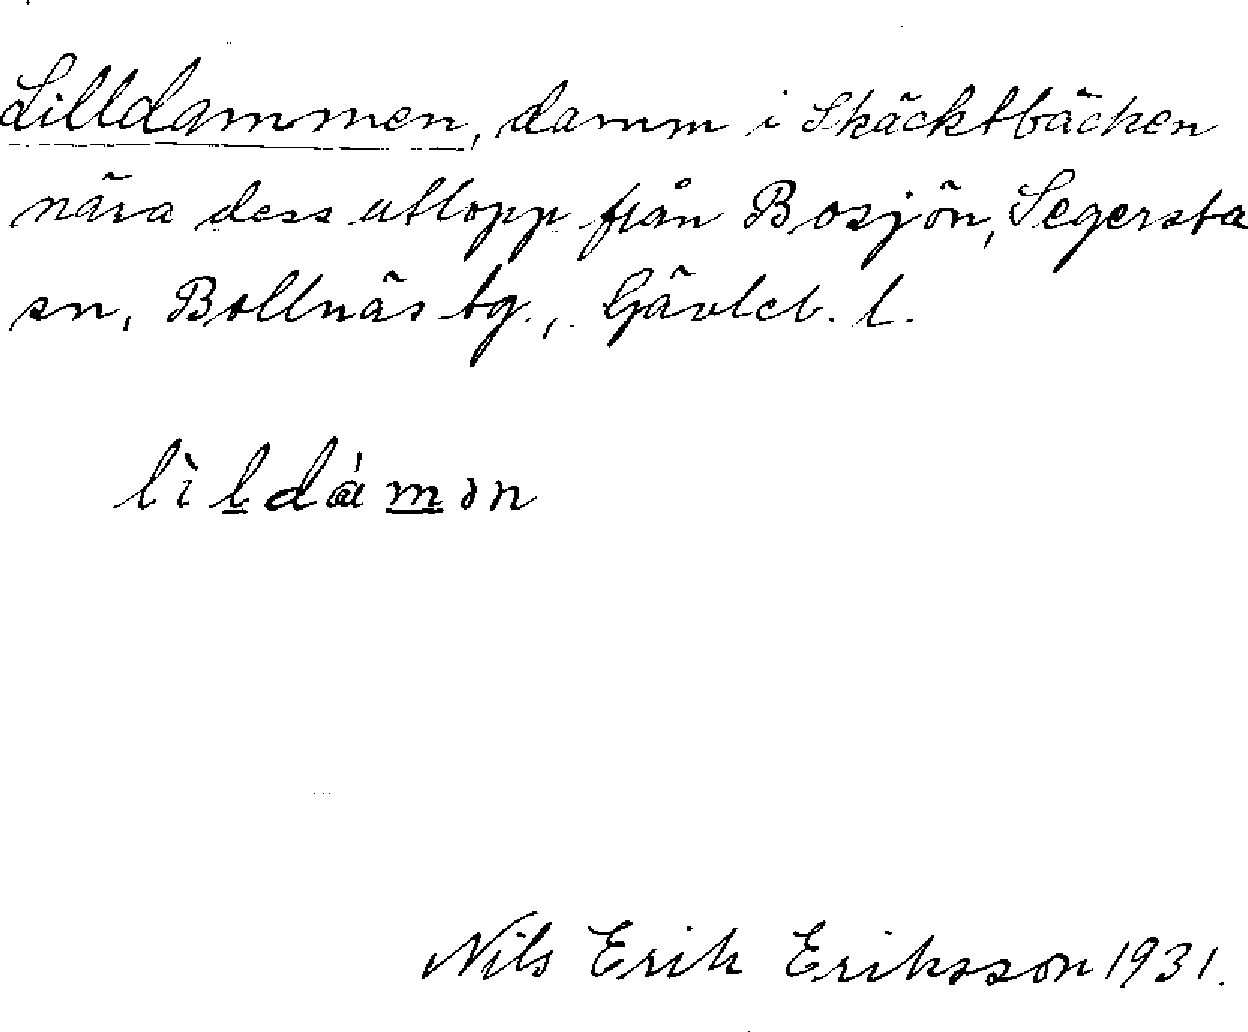 Lilldammen, damm i Skäcktbäcken
nära dess utlopp från Bosjön, Segersta
sn, Bollnäs tg., Gävleb. l.
lìldámən
Nils Erik Eriksson 1931.